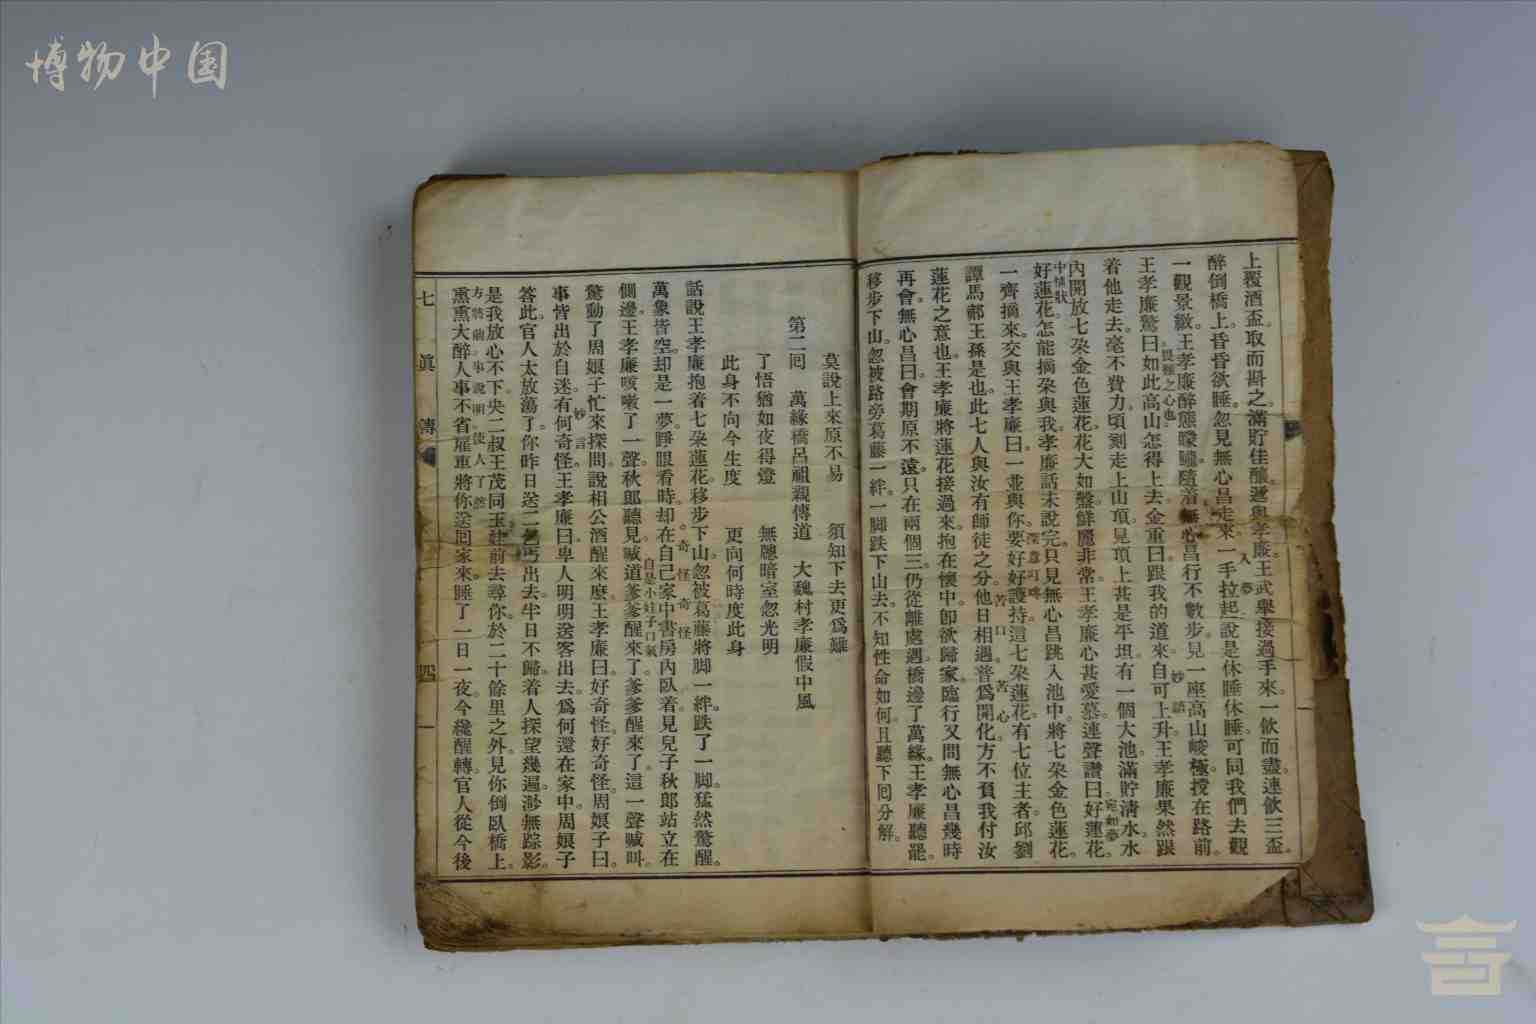 博物中国
上覆酒盃。取而斟之。滿貯佳釀。遞與孝廉。王武舉接過手來。一飲而盡。連飲三盃。
醉倒橋上。昏昏欲睡。忽見無心昌走來。一手拉起。說是休睡休睡。可同我們去觀
入夢
一觀景緻。王孝廉醉態矇矓。隨著無心昌行不數步。見一座高山峻極。攩在路前。
妙語
王孝廉驚曰。如此高山怎得上去。金重曰。跟我的道來。自可上升。王孝廉果然跟
畏難之心也。
着他走去。毫不費力。頃刻走上山頂。見頂上甚是平坦。有一個大池。滿貯清水。水
內開放七朶金色蓮花。花大如盤。鮮麗非常。王孝廉心甚愛慕。連聲讚曰。好蓮花。
宛如夢
中情狀。
好蓮花。怎能摘朶與我。孝廉話未說完。只見無心昌跳入池中。將七朶金色蓮花。
一齊摘來。交與王孝廉曰。一並與你。要好好護持。這七朶蓮花有七位主者。邱劉
深意可味。
譚馬郝王孫是也。此七人與汝有師徒之分。他日相遇。普爲開化。方不負我付汝
苦口苦心。
蓮花之意也。王孝廉將蓮花接過來。抱在懷中。卽欲歸家。臨行又問無心昌。幾時
再會。無心昌曰。會期原不遠。只在兩個三。仍從離處遇。橋邊了萬緣。王孝廉聽罷。
移步下山。忽被路旁葛藤一絆。一脚跌下山去。不知性命如何。且聽下囘分解。
莫說上來原不易　須知下去更爲難
第二囘　萬緣橋呂祖親傳道　大魏村孝廉假中風
了悟猶如夜得燈　無牕暗室忽光明
此身不向今生度　更向何時度此身
話說王孝廉抱着七朶蓮花。移步下山。忽被葛藤將脚一絆。跌了一脚。猛然驚醒。
萬象皆空。却是一夢。睜眼看時。却在自己家中書房內臥着。見兒子秋郎站立在
奇怪奇怪
側邊。王孝廉咳嗽了一聲。秋郎聽見。喊道。爹爹醒來了。爹爹醒來了。這一聲喊叫。
自是小娃子口氣。
驚動了周娘子。忙來探問。說相公酒醒來麼。王孝廉曰。好奇怪。好奇怪。周娘子曰。
事皆出於自迷。有何奇怪。王孝廉曰。卑人明明送客出去。爲何還在家中。周娘子
妙言
答此。官人太放蕩了。你昨日送二乞丐出去。半日不歸。着人探望幾遍。渺無踪影。
是我放心不下。央二叔王茂同玉建前去尋你。於二十餘里之外。見你倒臥橋上。
方將前事說明。使人了然
熏熏大醉。人事不省。雇車將你送囘家來。睡了一日一夜。今纔醒轉。官人從今後
七眞傳　四一